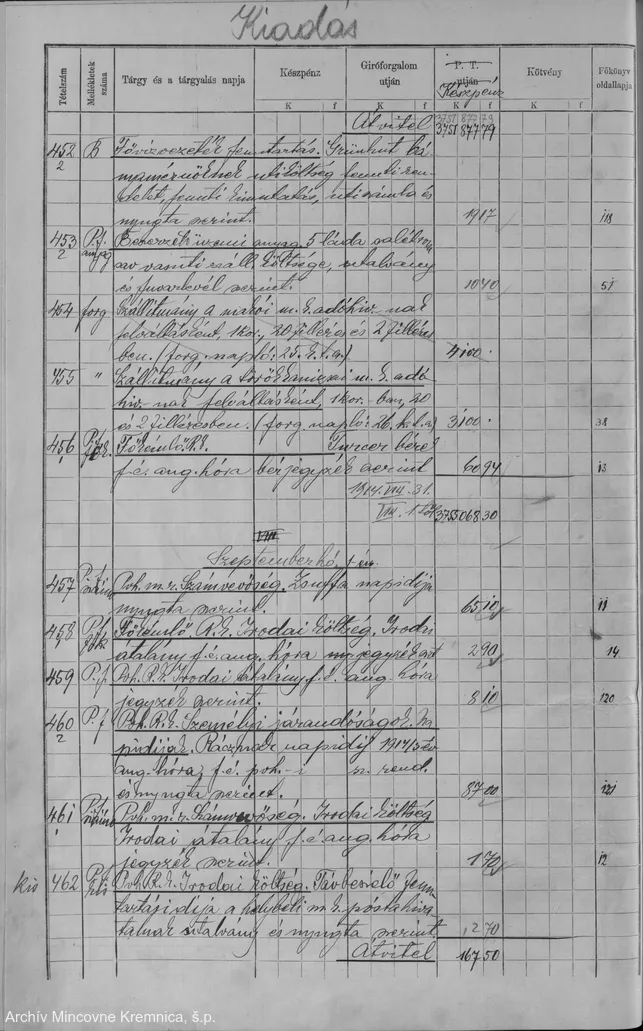 Kiadás
Tételszám
Mellékletek száma
Tárgy és a tárgyalás napja
Készpénz
Giróforgalom utján
P. T. utján
Készpénz
Kötvény
Főkönyv oldallapja
K f K f K f K f
Átvitel 3751 877 79
3751 877 79
452 B Fővízvezeték fenntartás. Grünhut bá-
2 nyamérnöknek utiköltség fennti ren-
delet, fennti kimutatás, utiszámla és
nyugta szerint. 19 17 118
453 P.f. Beszerzett üzemi anyag. 5 láda salétrom
2 anyag sav vasuti száll. költsége, utalvány
és fuvarlevél szerint. 10 40 51
454 forg Szállítmány a makói m. k. adóhiv.-nak
felváltásként, 1 kor., 20 filléres és 2 fillére-
ben. (forg. napló: 25. k. t. a.) 4100
455 " Szállítmány a törökkanizsai m. k. adó-
hiv.-nak felváltásként, 1 kor.-ban, 20
és 2 filléresben. (forg. napló: 26. k. t. a) 3100 38
456 Főkémlő. R. k. Turcer bérei
f. é. aug. hóra bérjegyzék szerint 60 94 13
1914. VIII. 31.
3755 068 30
VIII
Szeptember hó, 1-én.
457 P.f. Poh. m. r. Számvevőség. Zsuffa napidíja
nyugta szerint. 65 10 11
458 P.f. Főkémlő. R. k. Irodai költség. Irodai
átalány f. é. aug. hóra jegyzék szt 2 90 14
459 P.f. Poh. R. k. Irodai átalány f. é. aug. hóra
jegyzék szerint. 8 10 120
460 P.f Poh. R. k. Személyi járandóságok. Na-
2 pidíjak. Rásznak napidíj 1914/5 év
aug. hóra, f. é. poh.-i sz. rend.
és nyugta szerint. 87 00 121
461 P.f. Poh. m. r. Számvevőség. Irodai költség
Irodai átalány f. é. aug. hóra
jegyzék szerint. 1 70 12
kis 462 P.f. Poh. R. k. Irodai költség. Távbeszélő fenn-
tartási díja a helybeli m. k. póstahiva-
talnak utalvány és nyugta szerint. 1 2 70
Átvitel 167 50
Archív Mincovne Kremnica, š.p.